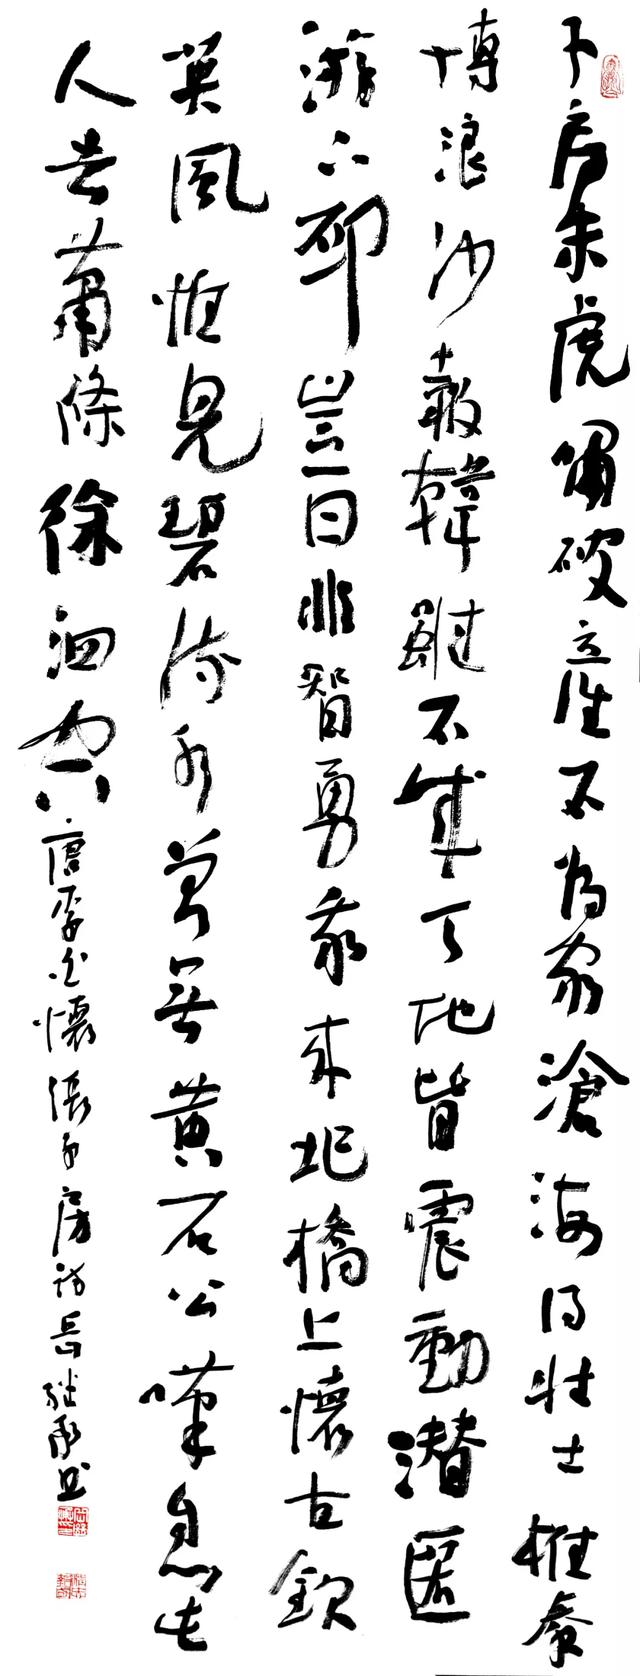 子房未虎嘯破產不為家滄海得壯士椎秦
博浪沙報韓雖不成天地皆震動潛匿
游下邳豈曰非智勇我來圯橋上懷古欽
英風惟見碧流水曾無黃石公嘆息此
人去蕭條徐泗空唐李白懷張子房詩